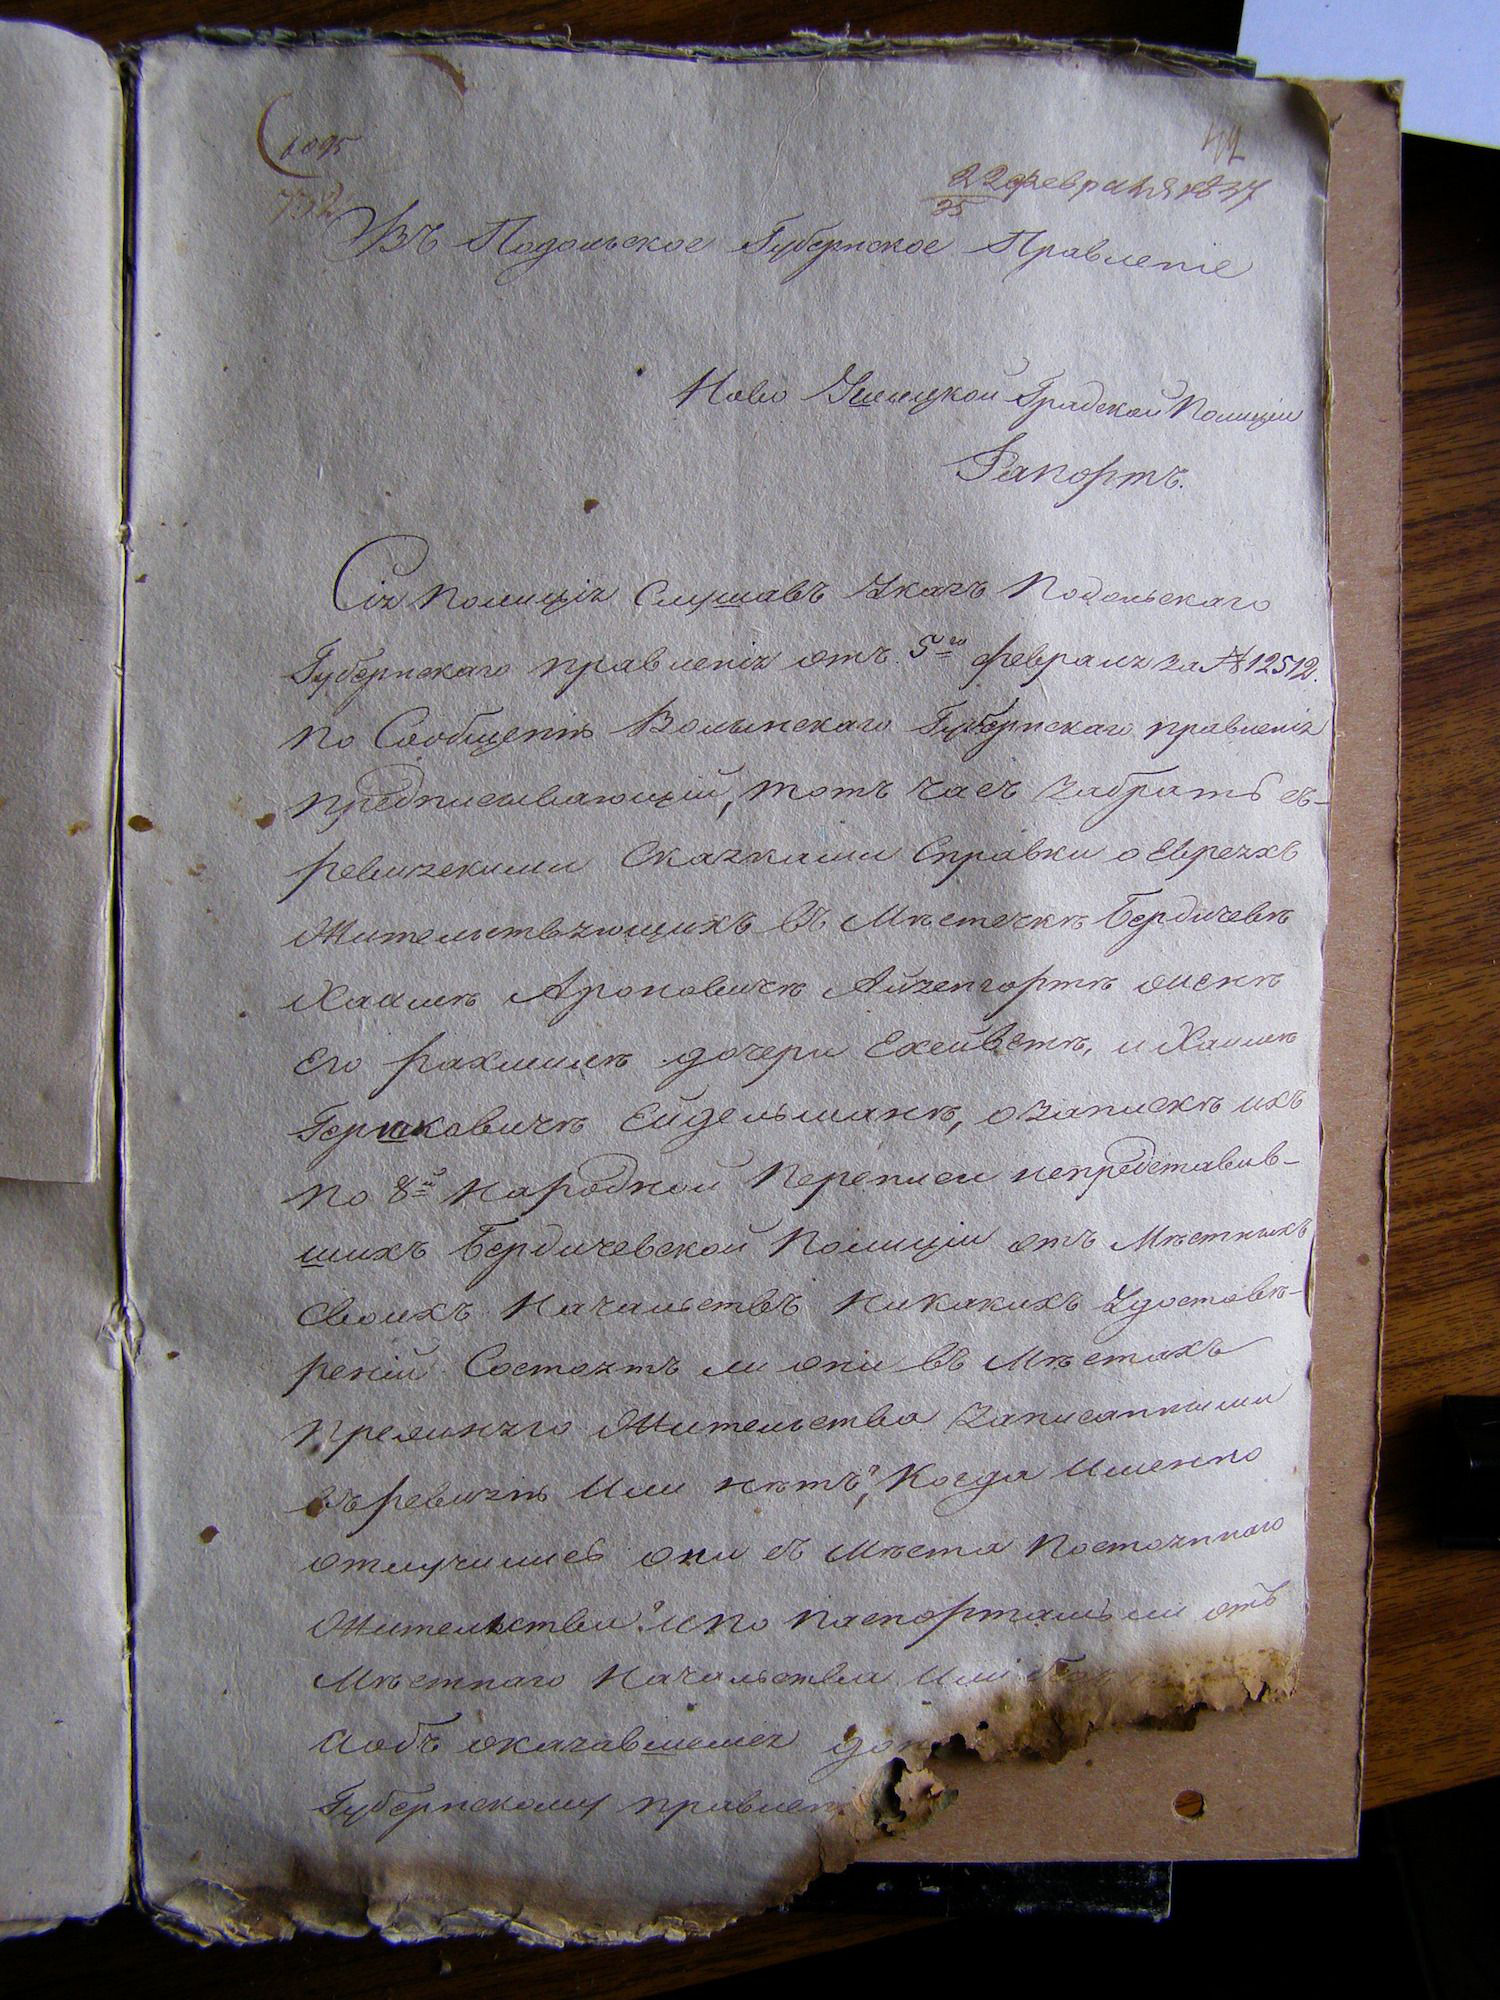 6095
732
42
22 февраля 1837
25
Въ Подольское Губернское Правленіе
Ново Ушицкой Градской Полиціи
Рапортъ.
Сія Полиція Слушавъ Указъ Подольскаго
Губернскаго правленія отъ 5го февраля за № 12512.
по Сообщенію Волынскаго Губернскаго правленія
предписывающій, тотъ часъ забрать съ-
ревизскими Сказками Справки о Евреяхъ
Жительствующихъ въ Мѣстечкѣ Бердичевѣ
Хаимѣ Ароновичѣ Айзенгортѣ женѣ
Его рахмилѣ дочери Ехейветѣ, и Хаимѣ
Гершковичѣ Ейдельманѣ, о запискѣ ихъ
по 8й народной Переписи непредставив-
шихъ Бердичевской Полиціи отъ Мѣстныхъ
Своихъ Начальствъ Никакихъ Удостовѣ-
реній Состоятъ ли они въ Мѣстахъ
прежняго Жительства Записанными
въ ревизію Или нѣтъ? Когда Именно
отлучились они съ Мѣста Постояннаго
Жительства? и по паспортамъ ли отъ
Мѣстнаго Начальства Или
И объ оказавшемся
Губернскому